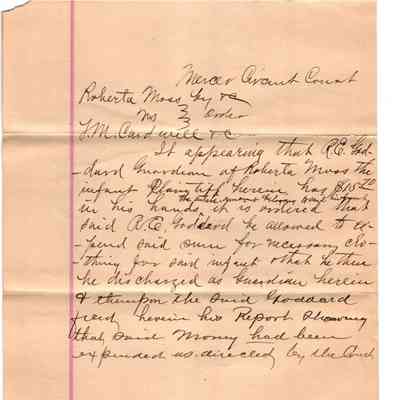 Mercer Circuit Court
Roberta Moss by &c
vs } Order
T.M. Cardwell &c
It appearing that R.E. God-
-dard Guardian of Roberta Moss the
infant Plaintiff herein has $10500
in his hands it is ordered that
said R.E. Goddard be allowed to ex-
-pend said sum for necessary clo-
-thing for said infant & that
he be discharged as Guardian herein
& thereupon the said Goddard
filed herein his Report showing
that said money had been
expended as directed by the Court